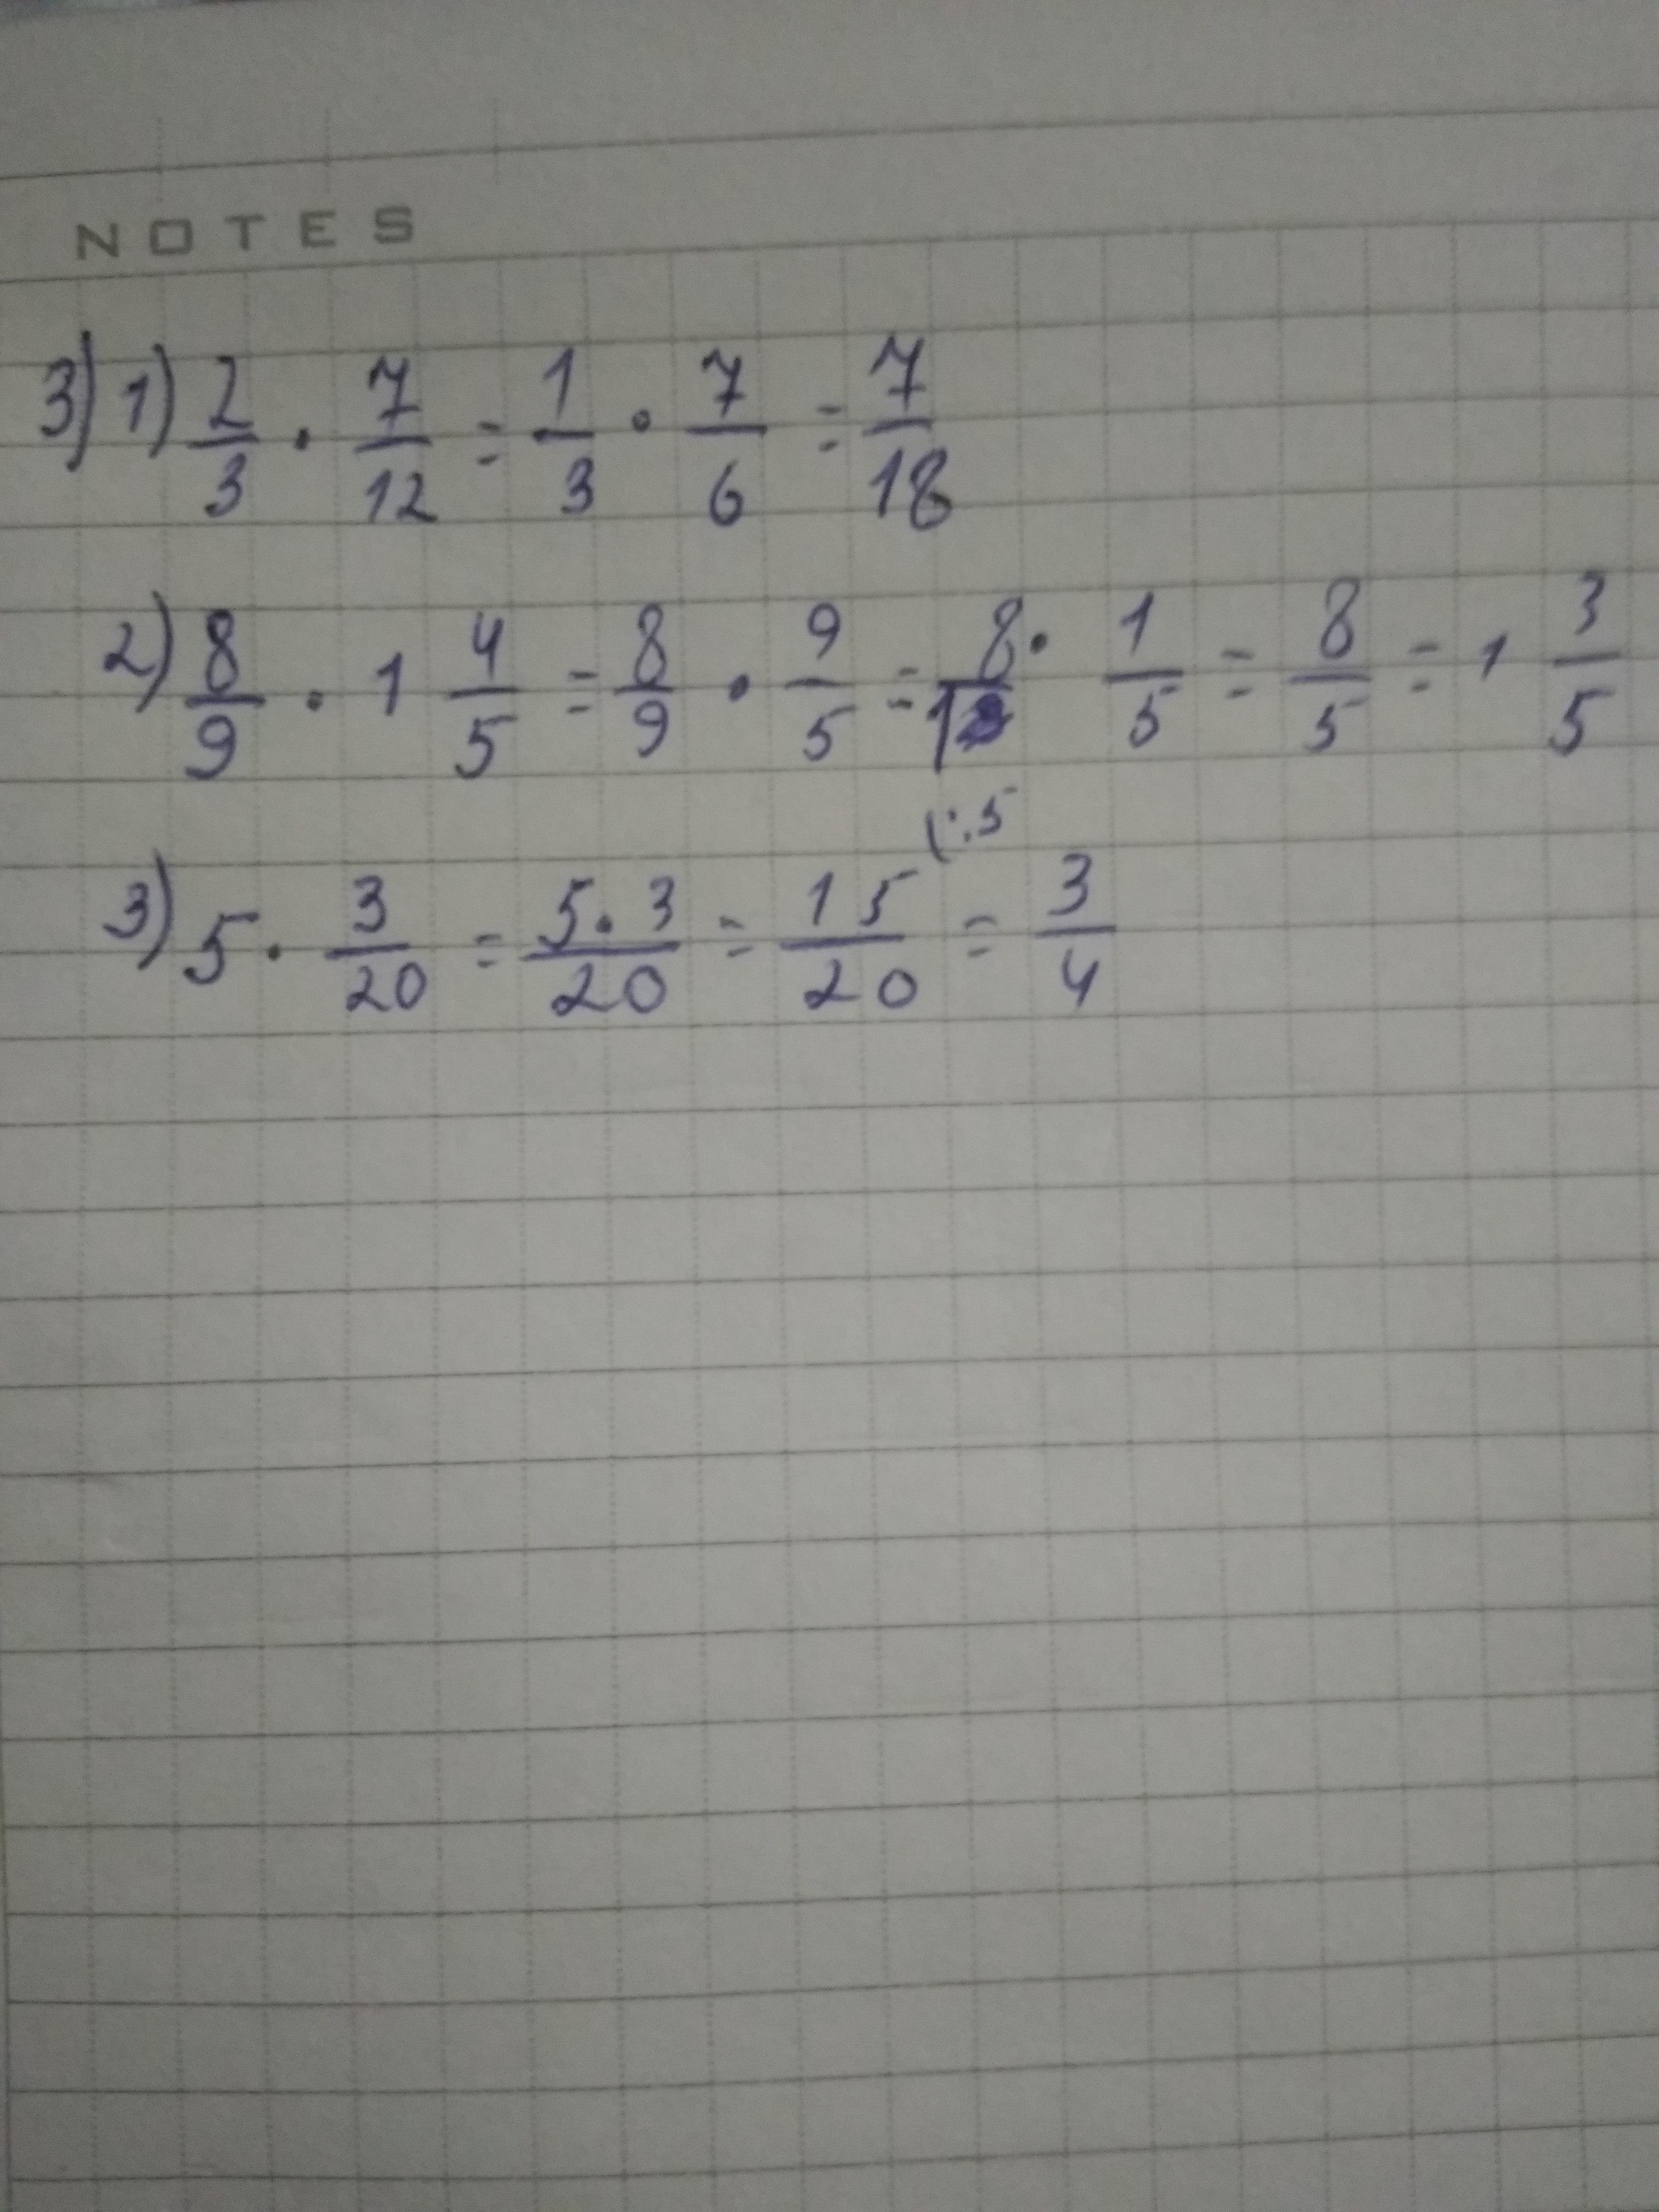 NOTES
3) 1) 2/3 · 7/12 = 1/3 · 7/6 = 7/18
2) 8/9 · 1 4/5 = 8/9 · 9/5 = 8/1 · 1/5 = 8/5 = 1 3/5
3) 5 · 3/20 = 5·3/20 = 15/20 (:5 = 3/4